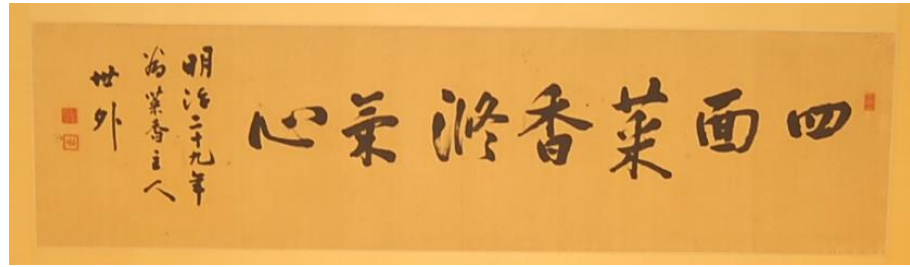 四面菜香滌氣心
明治二十九年
為菜香主人
世外